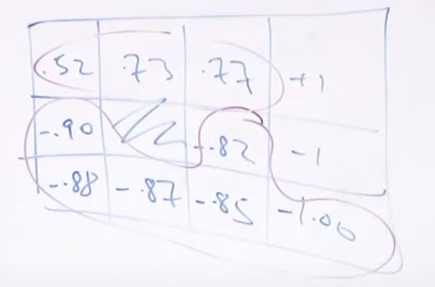 .52 .73 .77 +1
-.90 -.82 -1
-.88 -.87 -.85 -1.00